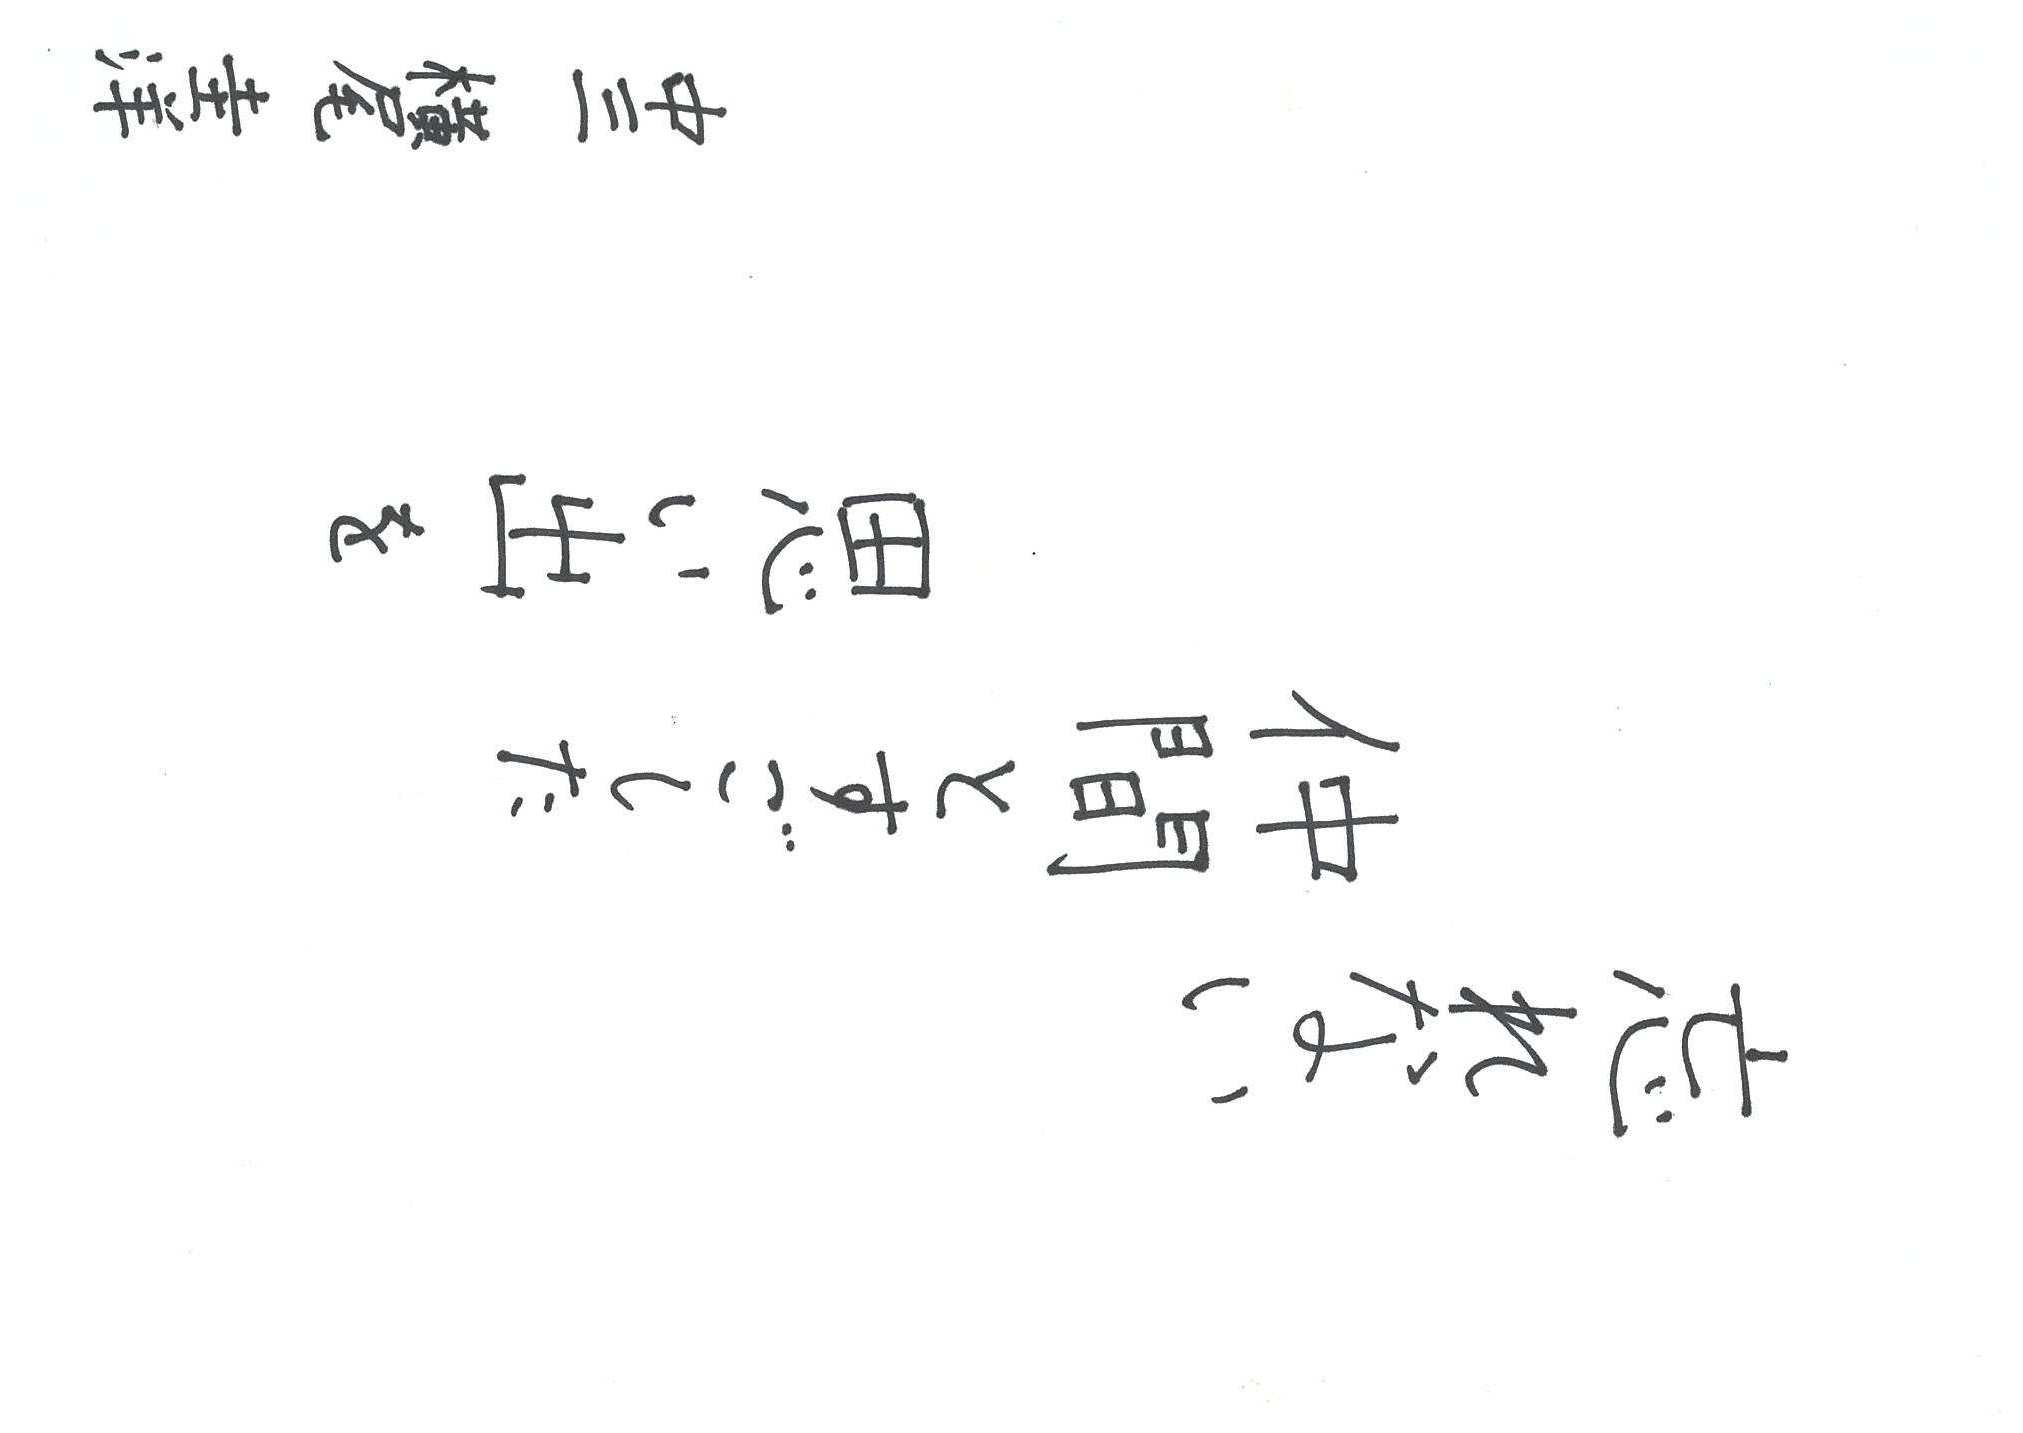 忘れない
仲間とすごした
思い出を
中三 横尾 幸洋